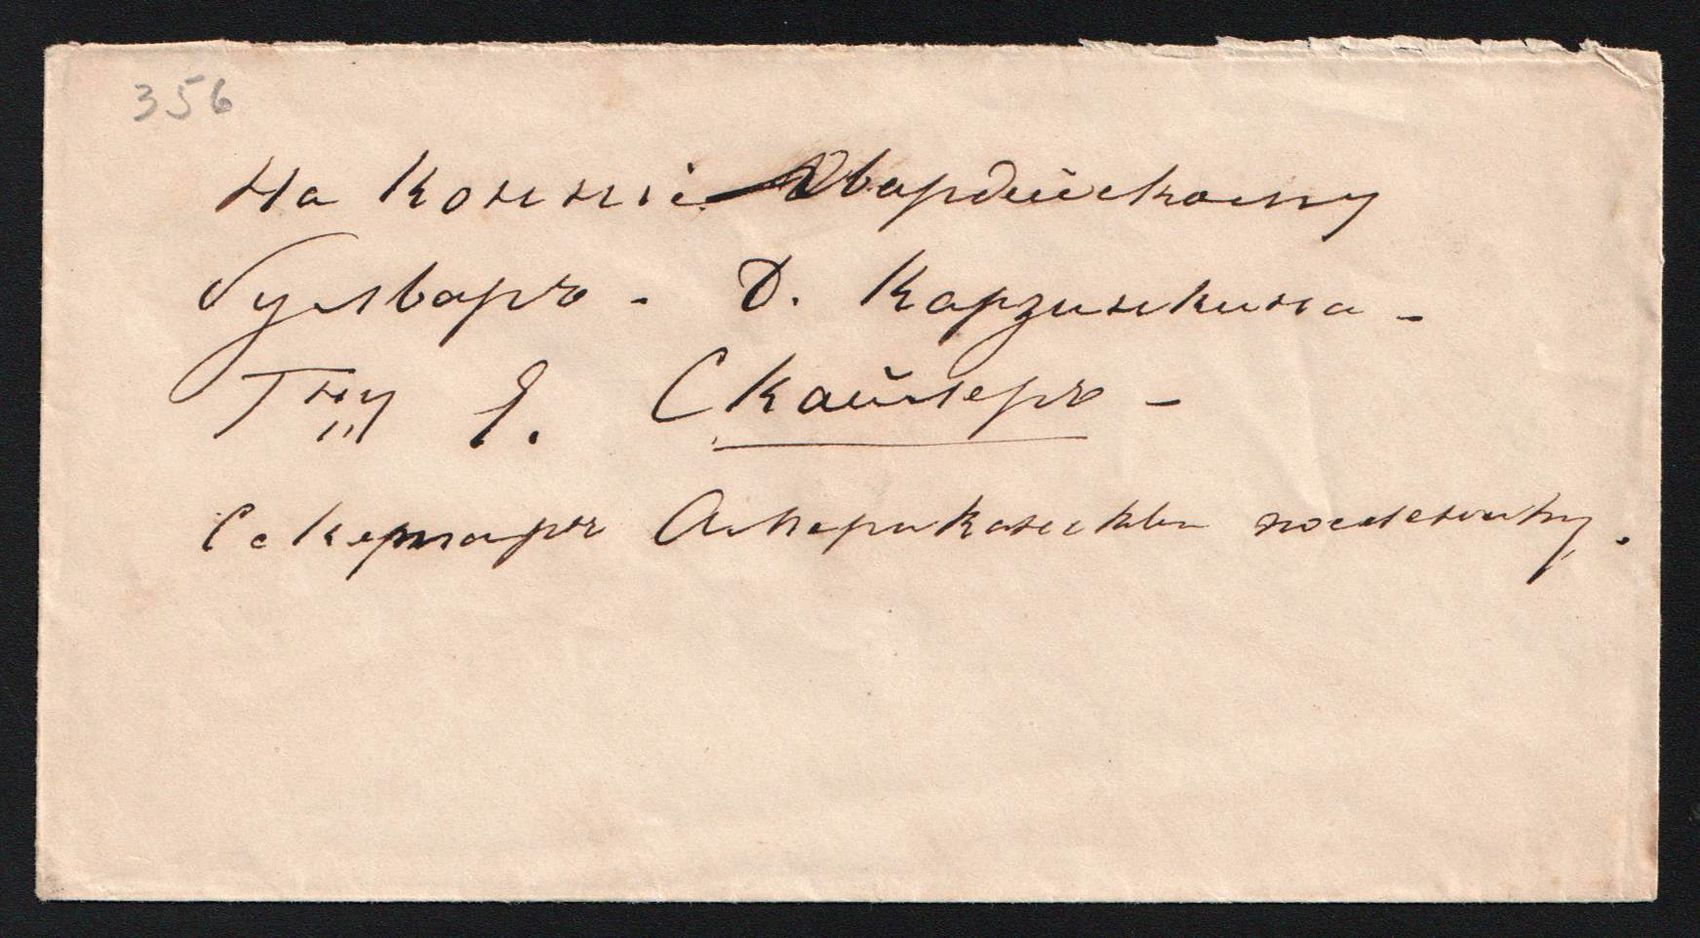 356
На Конніе Гвардейскому
Бульваръ - Д. Карзинкина -
Гну Я. Скайлеръ -
Секретаръ Американски посланику.